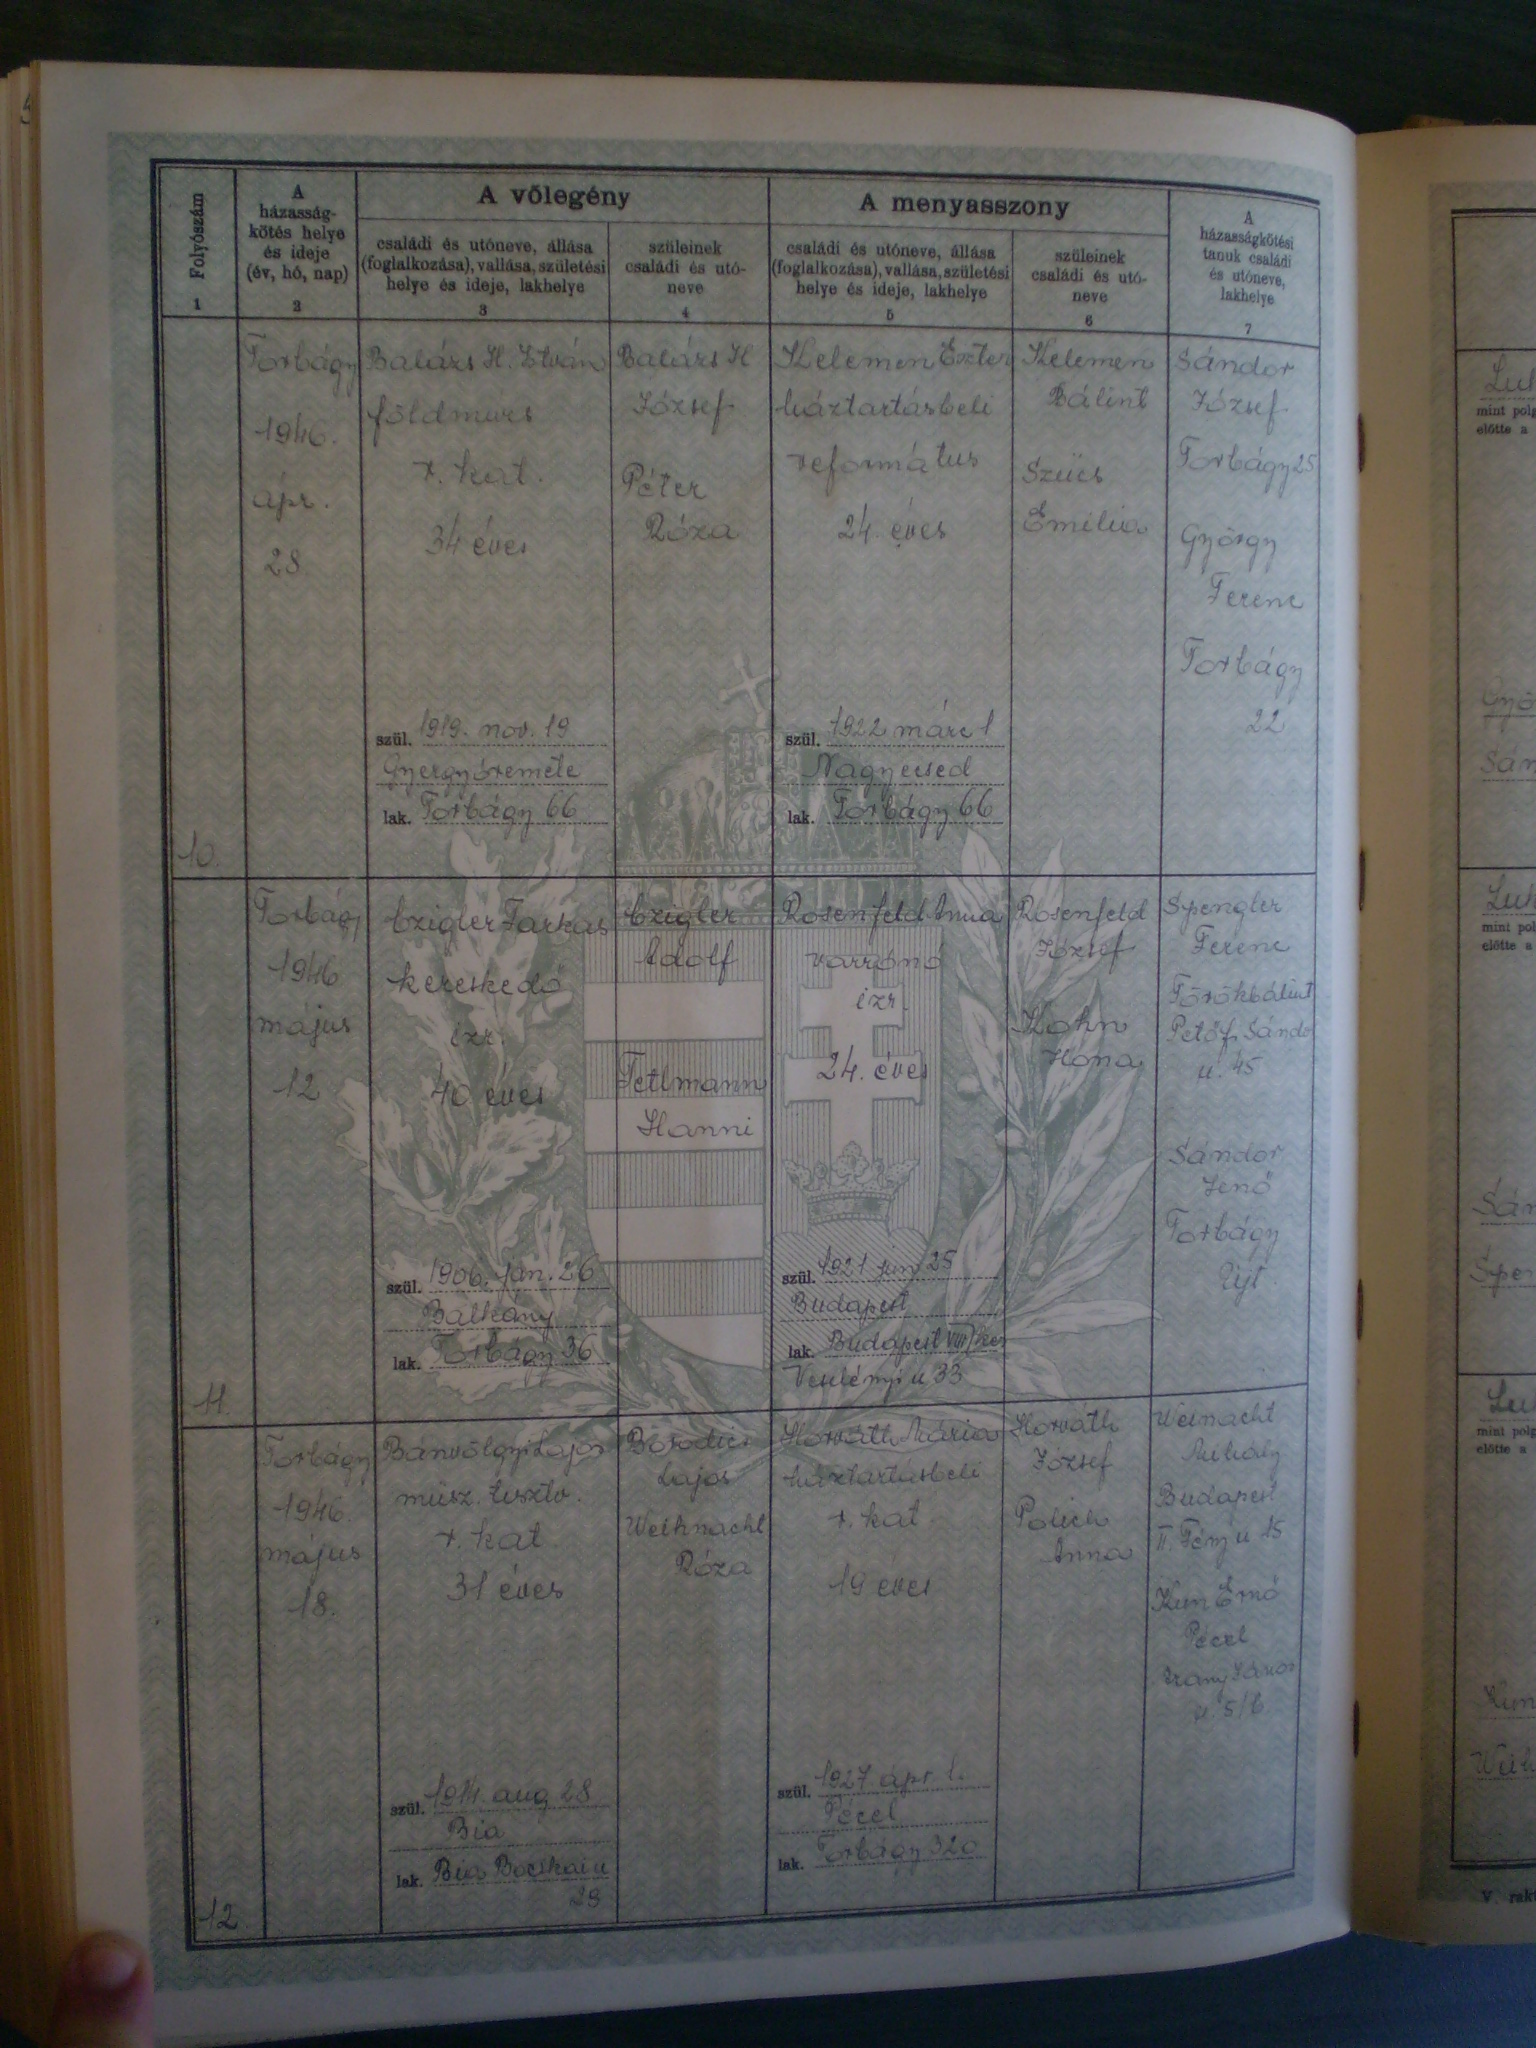 Folyószám
1
A
házasság-
kötés helye
és ideje
(év, hó, nap)
2
A vőlegény
családi és utóneve, állása
(foglalkozása), vallása, születési
helye és ideje, lakhelye
3
szüleinek
családi és utó-
neve
4
A menyasszony
családi és utóneve, állása
(foglalkozása), vallása, születési
helye és ideje, lakhelye
5
szüleinek
családi és utó-
neve
6
A
házasságkötési
tanuk családi
és utóneve,
lakhelye
7
10.
Torbágy
1946.
ápr.
28
Balázs H. István
földműves
r. kat.
34 éves
szül. 1919. nov. 19
Gyergyóremete
lak. Torbágy 66
Balázs H
József
Péter
Róza
Kelemen Eszter
háztartásbeli
református
24. éves
szül. 1922 márc 1
Nagyecsed
lak. Torbágy 66
Kelemen
Bálint
Szücs
Emilia
Sándor
József
Torbágy 25
György
Ferenc
Torbágy
22
11.
Torbágy
1946
május
12
Czigler Farkas
kereskedő
izr.
40 éves
szül. 1906. jan. 26
Balkány
lak. Torbágy 36
Czigler
Adolf
Fetlmann
Hanni
Rosenfeld Anna
varrónő
izr.
24. éves
szül. 1921 jun 25
Budapest
lak. Budapest VIII ker
Veselényi u 33
Rosenfeld
József
Kohn
Ilona
Spengler
Ferenc
Törökbálint
Petőfi Sándo
u. 45
Sándor
Jenő
Torbágy
12.
Torbágy
1946.
május
18.
Bánvölgyi Lajos
müsz. tisztv.
r. kat
31 éves
szül. 1914. aug 28
Bia
lak. Bia Bocskai u
28
Bosodics
Lajos
Weihnacht
Róza
Horváth Mária
háztartásbeli
r. kat
19 éves
szül. 1927 ápr 1.
Pécel
lak. Torbágy 320
Horváth
József
Polich
Anna
Weinacht
Budapest
II. Fény u 15
Kun Ernő
Pécel
Arany János
u. 5/6
mint polg
előtte a
mint pol
előtte a
mint polg
előtte a
V. rakt